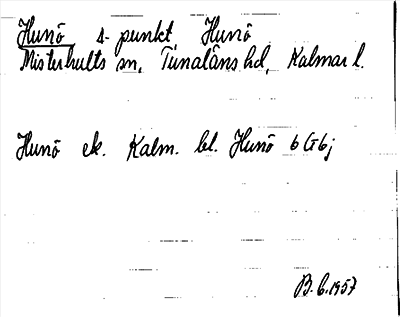 Hunö s. punkt Hunö
Misterhults sn, Tunaläns hd, Kalmar l.
Hunö ek. Kalm. bl. Hunö 6 G 6 j
B. G. 1957